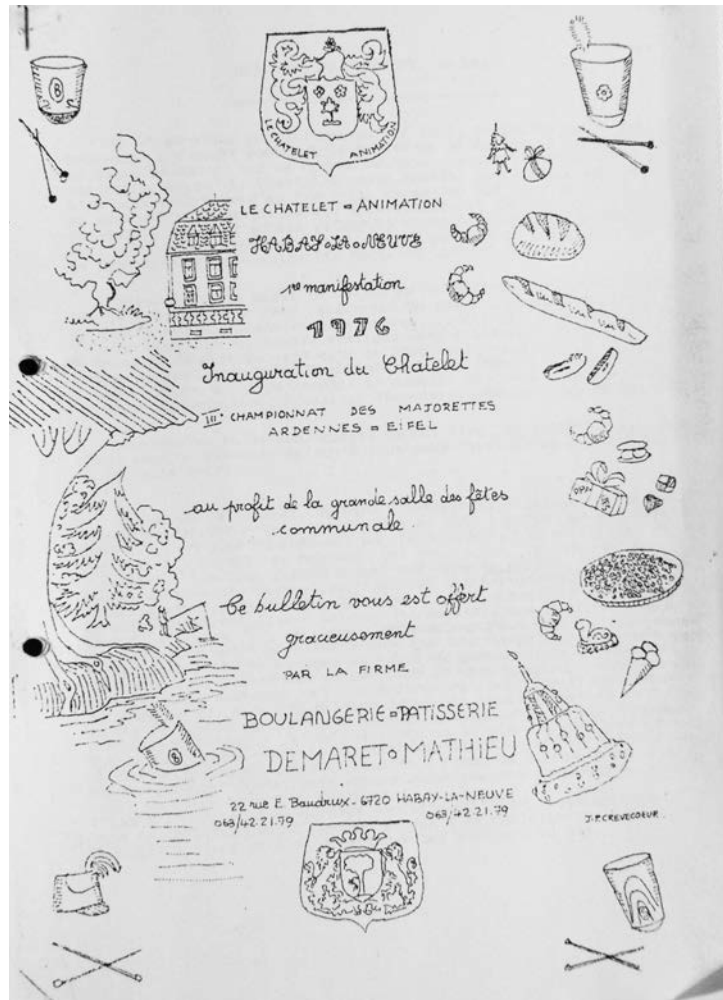 LE CHATELET ANIMATION
LE CHATELET = ANIMATION
HABAY-LA-NEUVE
1re manifestation
1976
Inauguration du Chatelet
IIIe CHAMPIONNAT DES MAJORETTES
ARDENNES = EIFEL
au profit de la grande salle des fêtes
communale.
Ce bulletin vous est offert
gracieusement
PAR LA FIRME
BOULANGERIE = PATISSERIE
B
DEMARET = MATHIEU
22 rue E. Baudrux - 6720 HABAY-LA-NEUVE
063/42.21.79 063/42.21.79
J.P. CREVECOEUR.